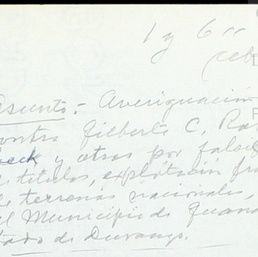 1 y 6
Asunto.- Averiguación
contra Gilberto C. Ra
beck y otros por falsi
de titulos, explotación fra
de terrenos nacionales,
el Municipio de Guana
tado de Durango.